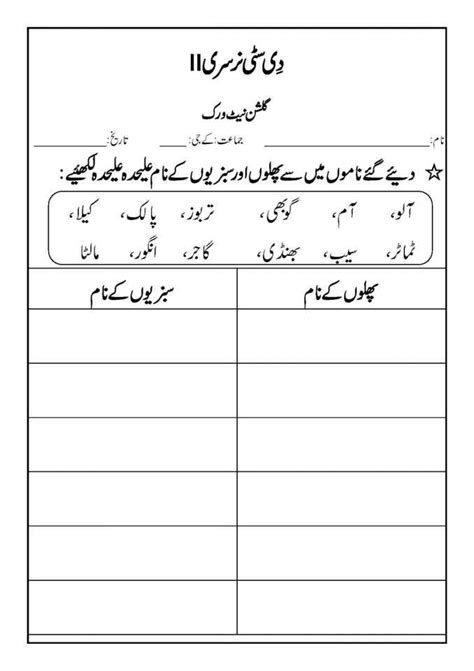 دِی سٹی نرسری II
گلشن نیٹ ورک
نام: جماعت: کے جی: تاریخ:
☆ دیئے گئے ناموں میں سے پھلوں اور سبزیوں کے نام علیحدہ علیحدہ لکھئیے :
آلو، آم، گوبھی، تربوز، پالک، کیلا،
ٹماٹر، سیب، بھنڈی، گاجر، انگور، مالٹا
پھلوں کے نام سبزیوں کے نام